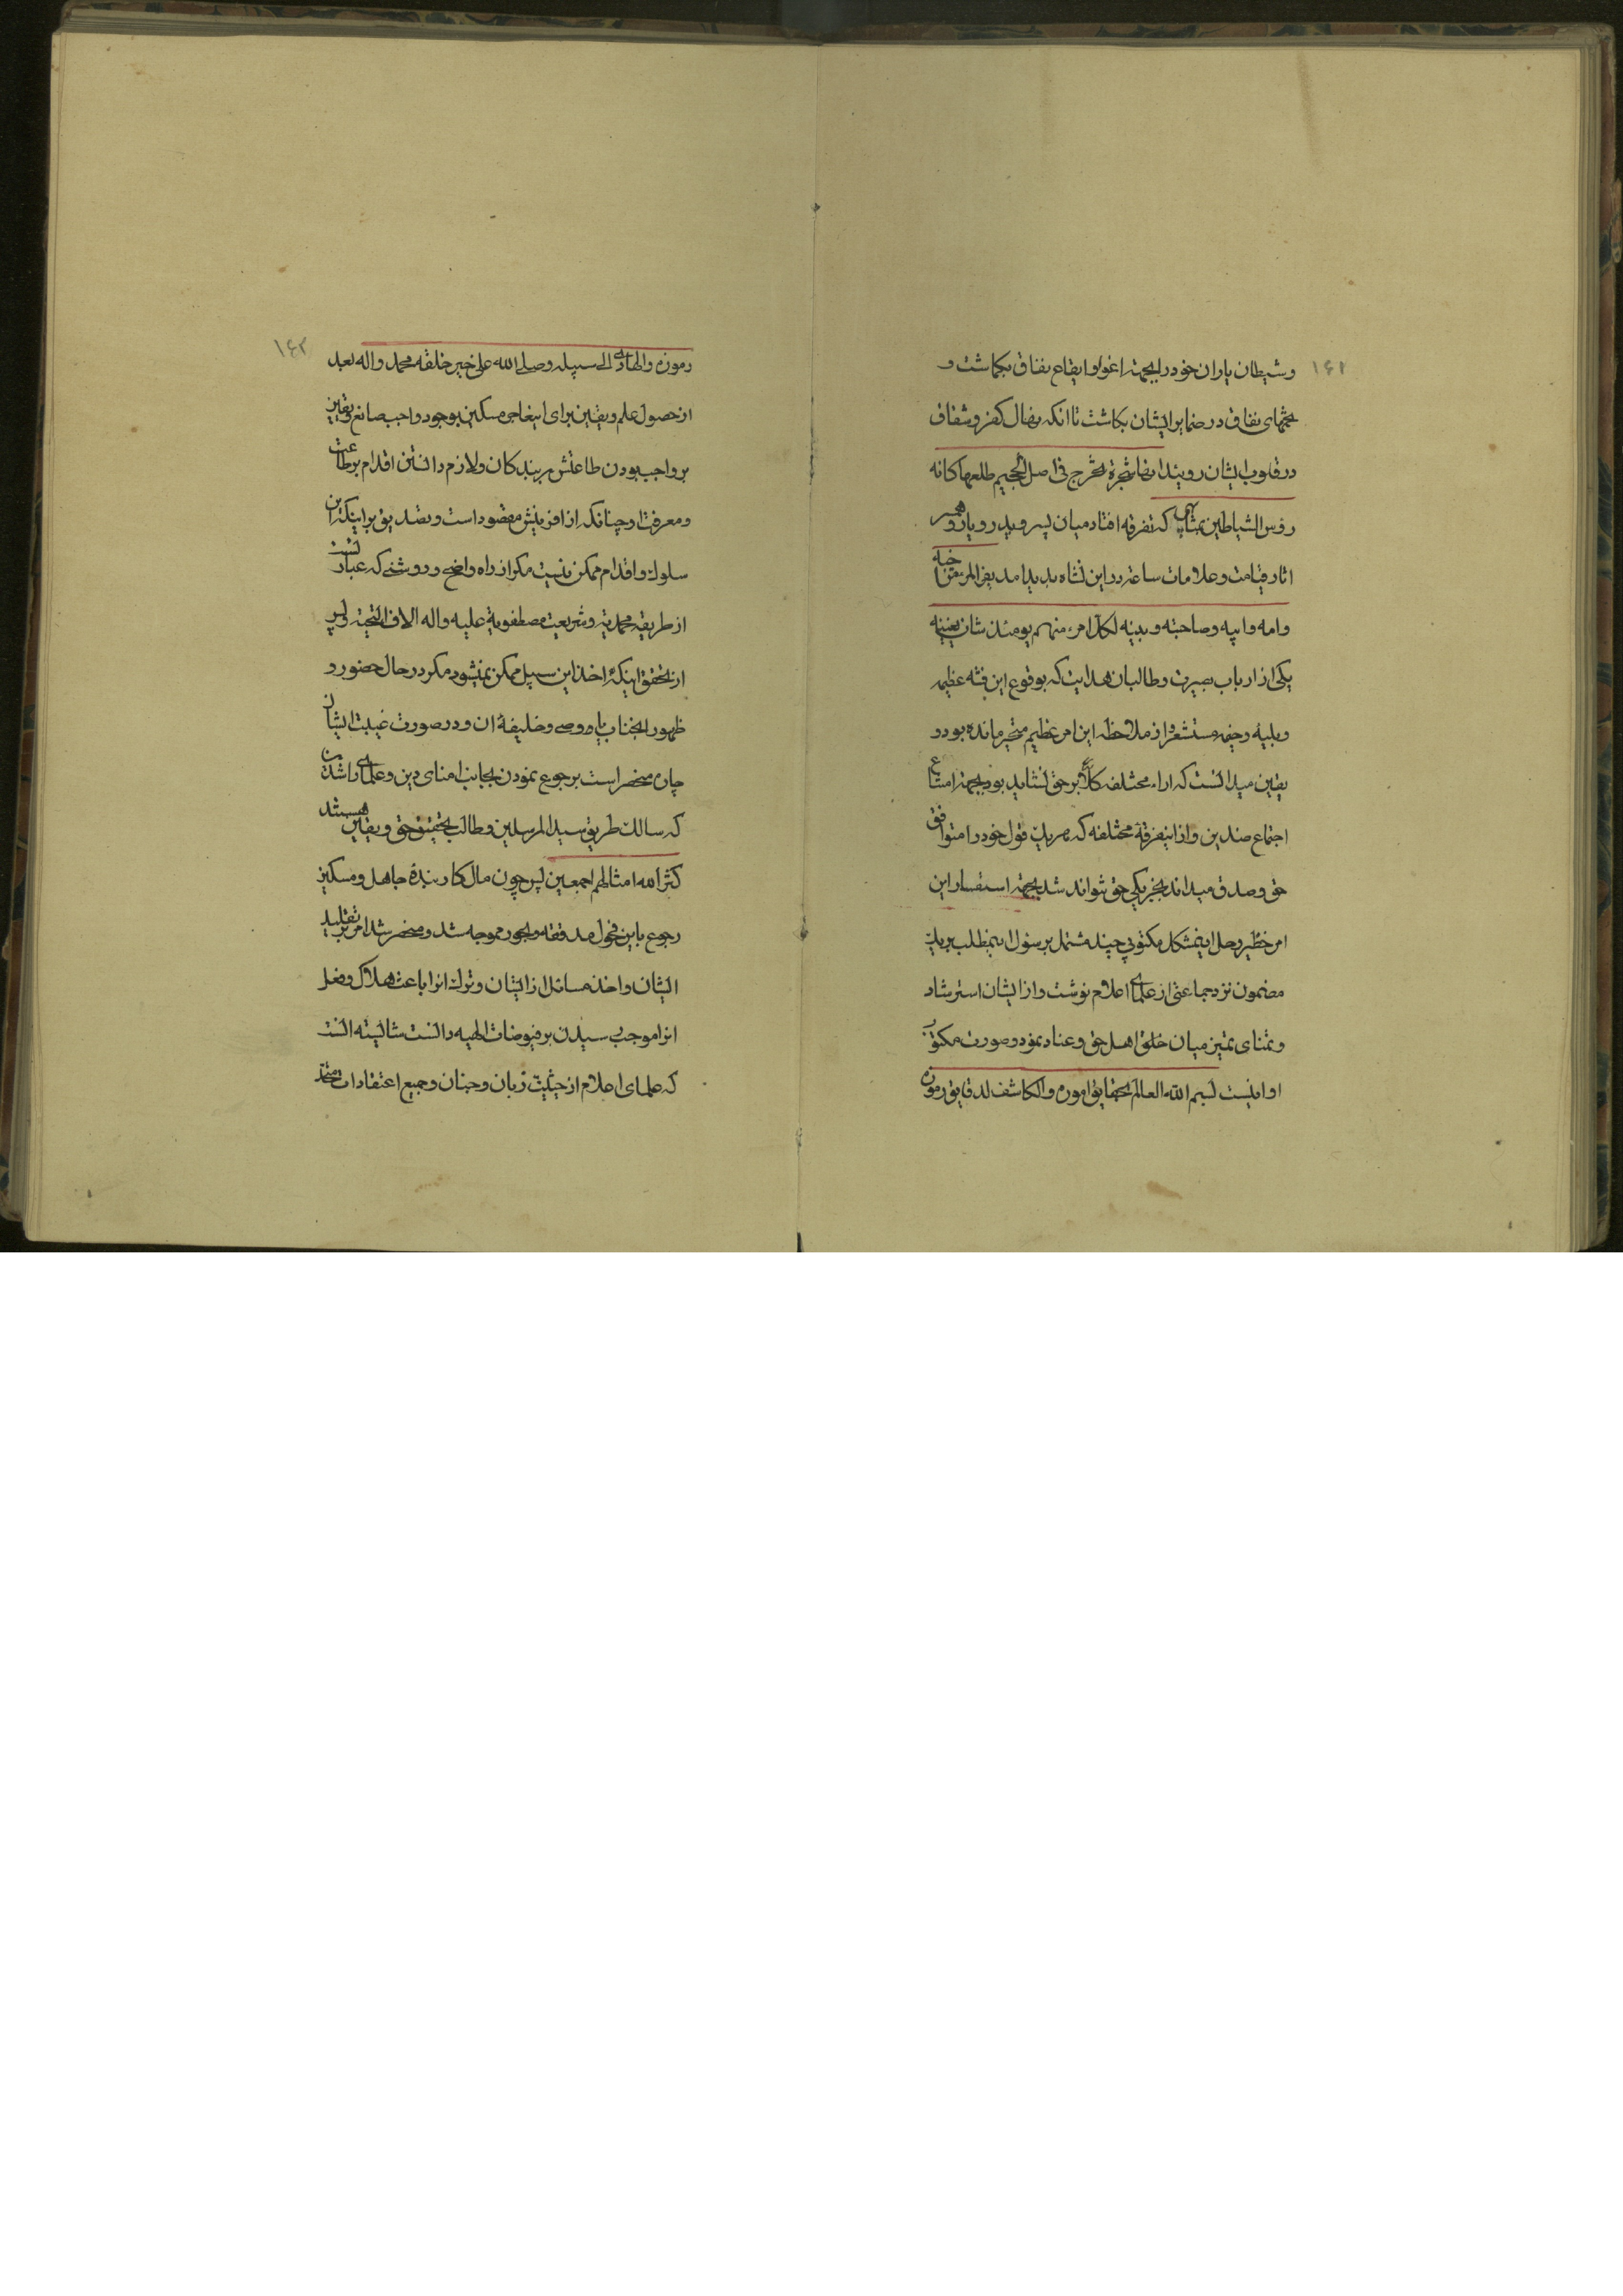 ۱۴۱
وشیطان یاران خود را بجهة اغوا و ایقاع نفاق بگماشت و
تخمهای نفاق در ضمایر ایشان بکاشت تا انکه نهال کفر و شقاق
در قلوب ایشان رویید انها شجرة تخرج فی اصل الجحیم طلعها کانه
رؤس الشیاطین بمثابه که تفرقه افتاد میان پسر و پدر و یار و همسر
اثار قیامت و علامات ساعة در این نشاه پدید امد یفر المرء من اخیه
وامه وابیه وصاحبته وبنیه لکل امرء منهم یومئذ شان یغنیه
یکی از ارباب بصیرت و طالبان هدایت که بوقوع این فتنه عظیمه
و بلیه مستشعر و از ملاحظه این امر عظیم متحیر مانده بود و
یقین میدانست که اراء مختلفه کلاً بر حق نشاید بود بجهة امتناع
اجتماع ضدین و از اینفرقه مختلفه که هر یک قول خود را متوافق
حق و صدق میداند بجز یکی حق نتواند شد بجهة استفسار این
امر خطیر و حل اینمشکل مکتوبی چند مشتمل بر سئول اینمطلب بر یک
مضمون نزد جماعتی از علمای اعلام نوشت و از ایشان استرشاد
و تمنای تمیز میان خلق اهل حق و عناد نمود و صورت مکتوب
او اینست بسم الله العالم بحقایق اموره والکاشف لدقایق رموزه
۱۴۲
رموزه والهادی الی سبیله وصلی الله علی خیر خلقه محمد واله بعد
از حصول علم و یقین برای اینعاجز مسکین بوجود واجب صانع و یقین
بر واجب بودن طاعتش بر بندکان و لازم دانستن اقدام بر طاعت
و معرفت او چنانکه از افرینش مقصود است و تصدیق بر اینکه این
سلوک و اقدام ممکن نیست مکر از راه واضح و روشنی که عبارتست
از طریقه محمدیة و شریعت مصطفویة علیه واله الاف التحیة و پس
از تحقق اینکه اخذ این سبیل ممکن نمیشود مکر در حال حضور و
ظهور انجناب یا وصی و خلیفهٔ ان و در صورت غیبت ایشان
چاره منحصر است برجوع نمودن بجانب امنای دین و علمای راشدین
که سالک طریق سید المرسلین و طالب تحقیق حق و یقین هستند
کثر الله امثالهم اجمعین پس چون مال کار بندهٔ جاهل و مسکین
رجوع باین فحول شد و منحصر شد امر بر تقلید
ایشان و اخذ مسائل از ایشان و ترک انرا باعث هلاک و فعل
انرا موجب رسیدن بر فیوضات الهیه دانست شایسته انست
که علمای اعلام از حیثیت زبان و جنان و جمیع اعتقادات متحد